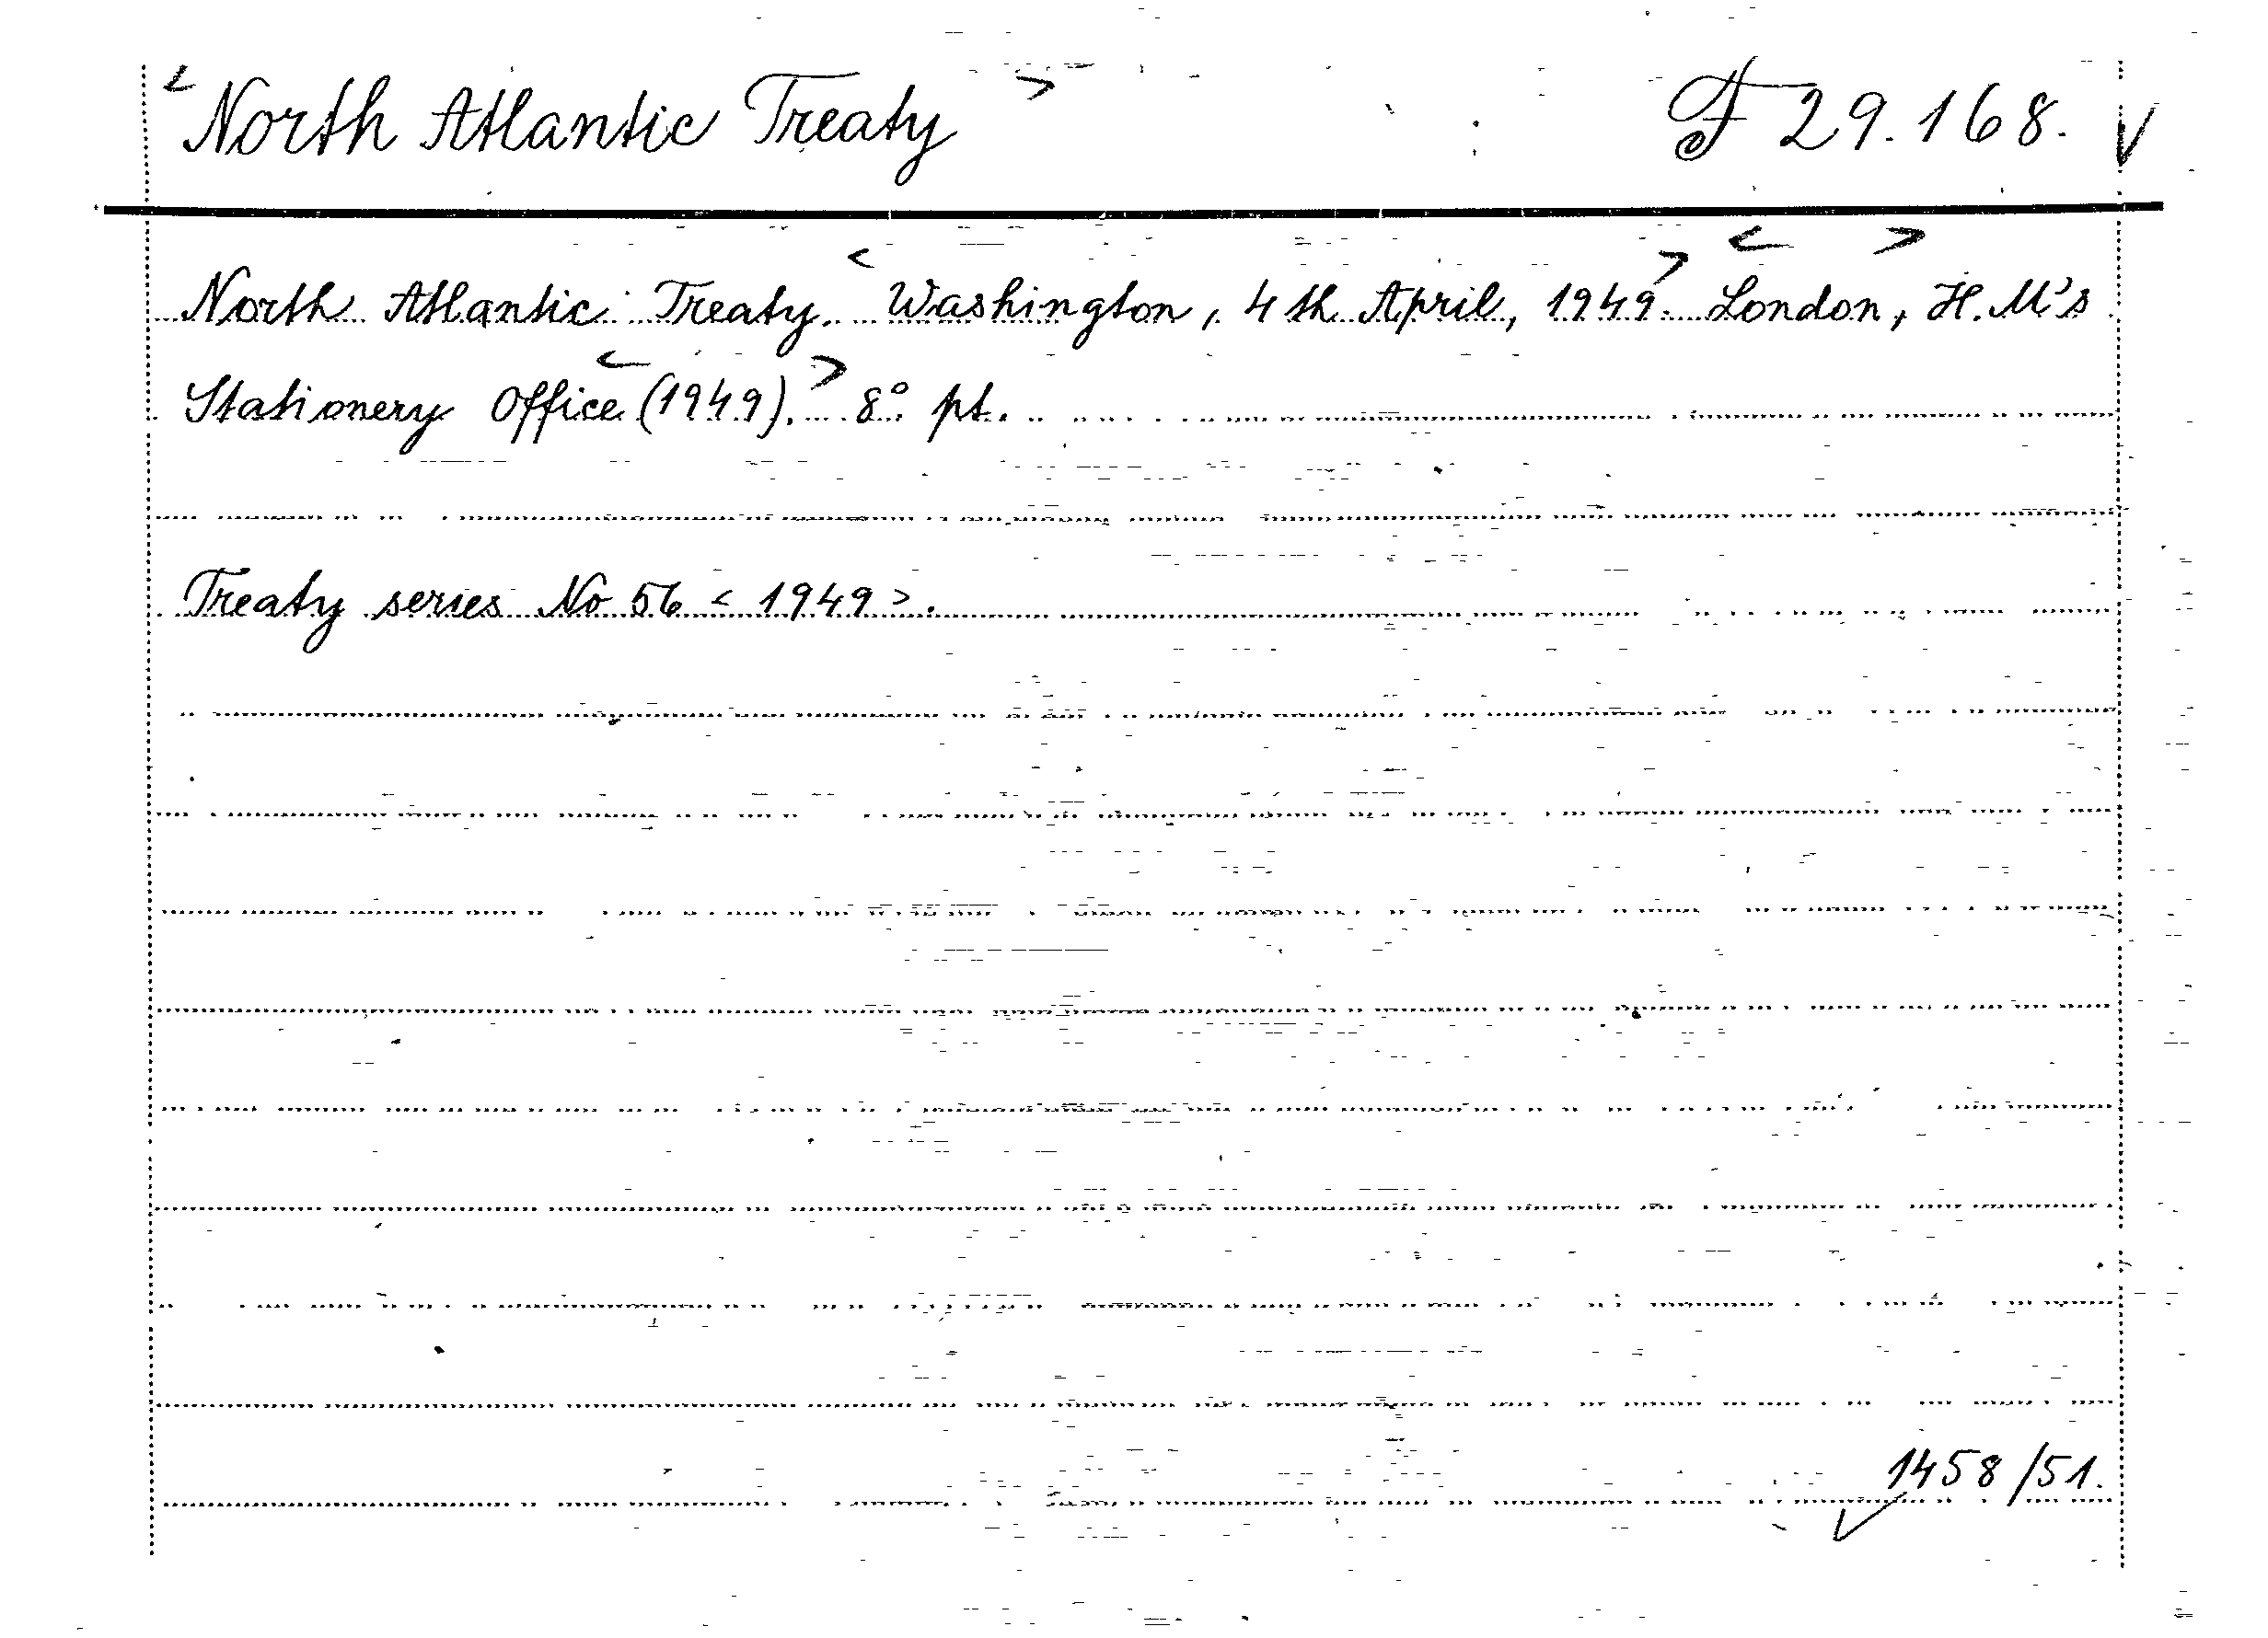 <North Atlantic Treaty> F 29.168. V
North Atlantic Treaty. <Washington, 4th April, 1949.> <London,> H.M's
Stationery Office <(1949).> 8° pt.
Treaty series No 56 <1949>.
1458/51.